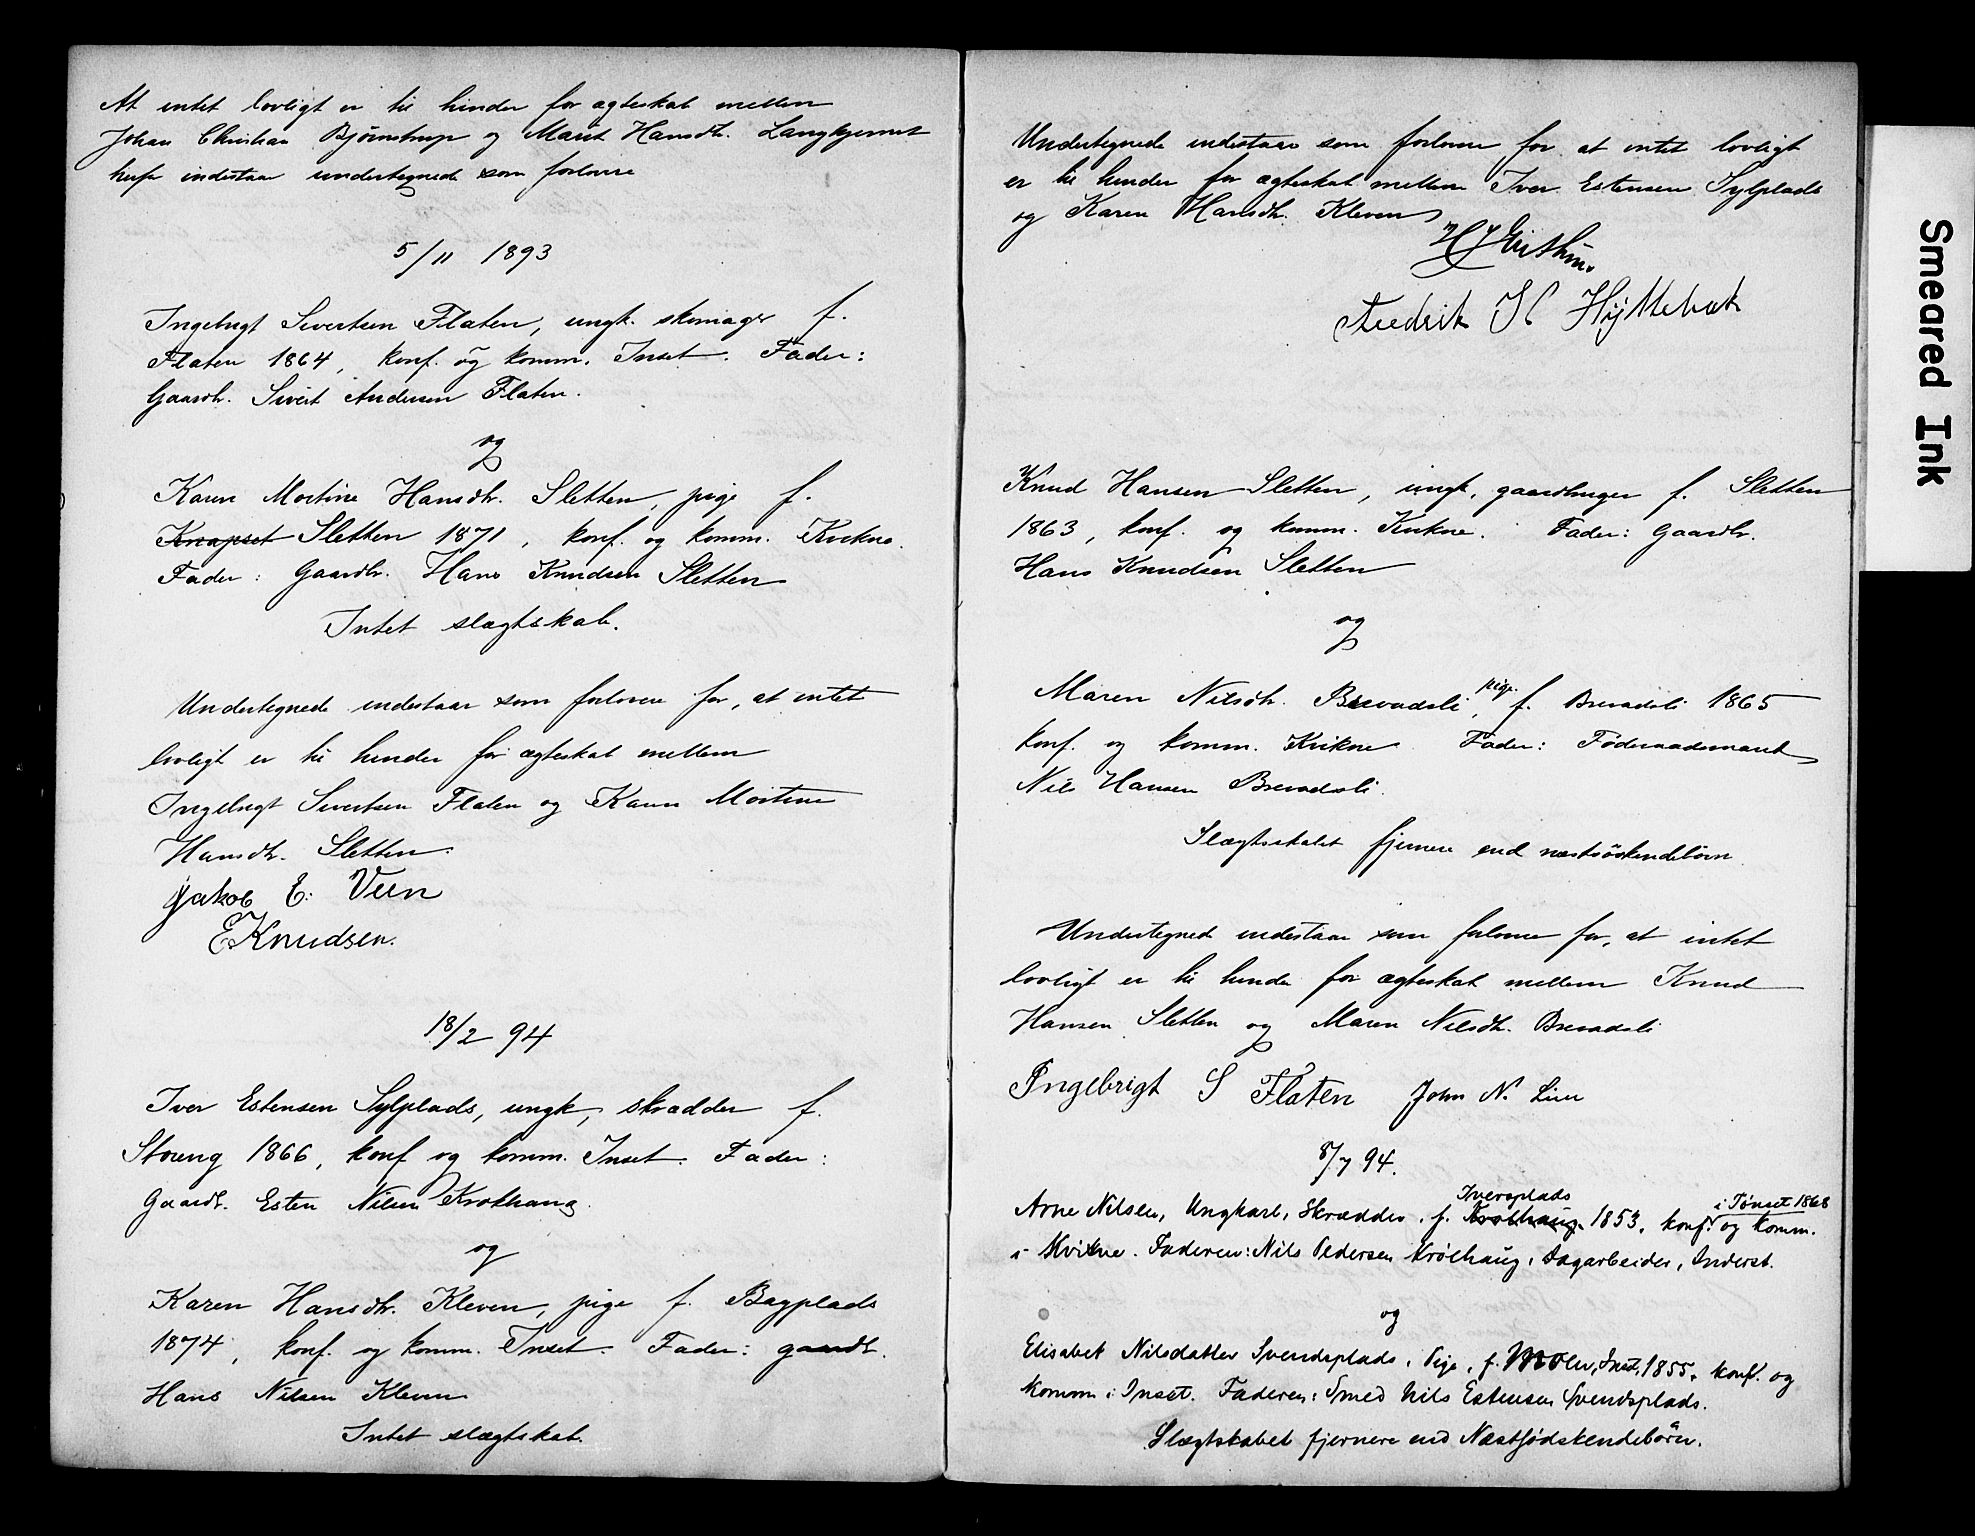 At intet lovligt er til hinder for ægteskab mellem
Johan Christian Bjørnstrup og Marit Hansdtr. Langkjernet
indestaar undertegnede som forlovere
5/11 1893
Ingebrigt Sivertsen Flaten, ungk. skomager f.
Flaten 1864, konf. og komm. Inset. Fader:
Gaardbr. Sivert Andersen Flaten.
og
Karen Mortine Hansdtr. Sletten, pige f.
Knapset Sletten 1871, konf. og komm. Kvikne.
Fader: Gaardbr. Hans Knudsen Sletten
Intet slægtskab.
Undertegnede indestaar som forlovere for, at intet
lovligt er til hinder for ægteskab mellem
Ingebrigt Sivertsen Flaten og Karen Mortine
Hansdtr. Sletten.
Jakob E. Veen
E Knudsen.
18/2 94
Iver Estensen Sylplads, ungk., skrædder f.
Støeng 1866, konf og komm. Inset. Fader:
Gaardbr. Esten Nilsen Krokhaug.
og
Karen Hansdtr. Kleven, pige f. Bagplads
1874, konf. og komm. Inset. Fader: gaardbr.
Hans Nilsen Kleven
Intet slægtskab.
Undertegnede indestaar som forlovere for at intet lovligt
er til hinder for ægteskab mellem Iver Estensen Sylplads
og Karen Hansdtr. Kleven
Fredrik H Hyttebæk
Knud Hansen Sletten, ungk. gaardbruger f. Sletten
1863, konf. og komm. Kvikne. Fader: Gaardbr.
Hans Knudsen Sletten
og
Maren Nilsdtr. Brevadsli, pige. f. Brevadsli 1865
konf. og komm. Kvikne. Fader: Føderaadsmand
Nils Hansen Brevadsli.
Slægtsskabet fjernere end næstsöskendebörn.
Undertegnede indestaar som forlovere for, at intet
lovligt er til hinder for ægteskab mellem Knud
Hansen Sletten og Maren Nilsdtr. Brevadsli
Ingebrigt S Flaten John N. Lien
8/7 94.
Iversplads i Tønset 1868
Arne Nilsen, Ungkarl, Skrædder. f. Krokhaug 1853. konf. og komm.
i Kvikne. Faderen: Nils Pedersen Krokhaug, Dagarbeider, Inderst.
og
Elisabet Nilsdatter Svendsplads, Pige, f. Moen, Inset, 1855, konf. og
komm i Inset. Faderen: Smed Nils Estensen Svendsplads.
Slægtskabet fjernere end Næstsødskendebörn.
Smeared Ink